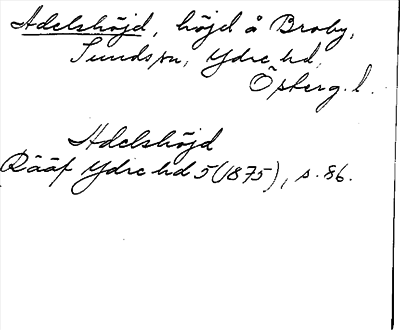 Adelshöjd, höjd å Broby,
Sunds sn, Ydre hd,
Östergötl.
Adelshöjd
Rääf Ydre hd 5 (1875), s. 86.